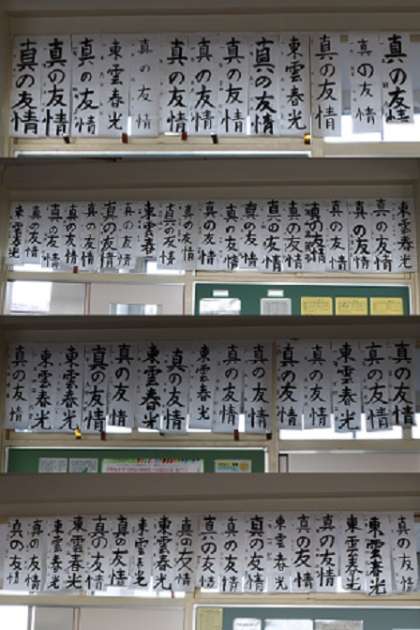 真の友情
真の友情
真の友情
東雲春光
真の友情
真の友情
真の友情
真の友情
真の友情
東雲春光
真の友情
真の友情
真の友情
東雲春光
真の友情
真の友情
真の友情
真の友情
真の友情
真の友情
東雲春光
真の友情
真の友情
真の友情
真の友情
真の友情
真の友情
真の友情
真の友情
真の友情
真の友情
真の友情
東雲春光
真の友情
東雲春光
東雲春光
真の友情
真の友情
東雲春光
真の友情
東雲春光
真の友情
真の友情
真の友情
真の友情
東雲春光
真の友情
真の友情
真の友情
真の友情
東雲春光
東雲春光
真の友情
真の友情
東雲春光
東雲春光
真の友情
真の友情
真の友情
真の友情
東雲春光
真の友情
真の友情
東雲春光
東雲春光
真の友情